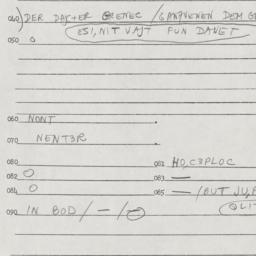 040) DER DAJTER GRENEC / GANZVENEN DEM G
ESI, NIT VAJT FUN DANET
050 o
060 NONT
070 NENTƷR
080
081 HO,CƷPLOC
082 O
083 —
084 O
085 — / BUT JU,
090 IN BOD / — / O